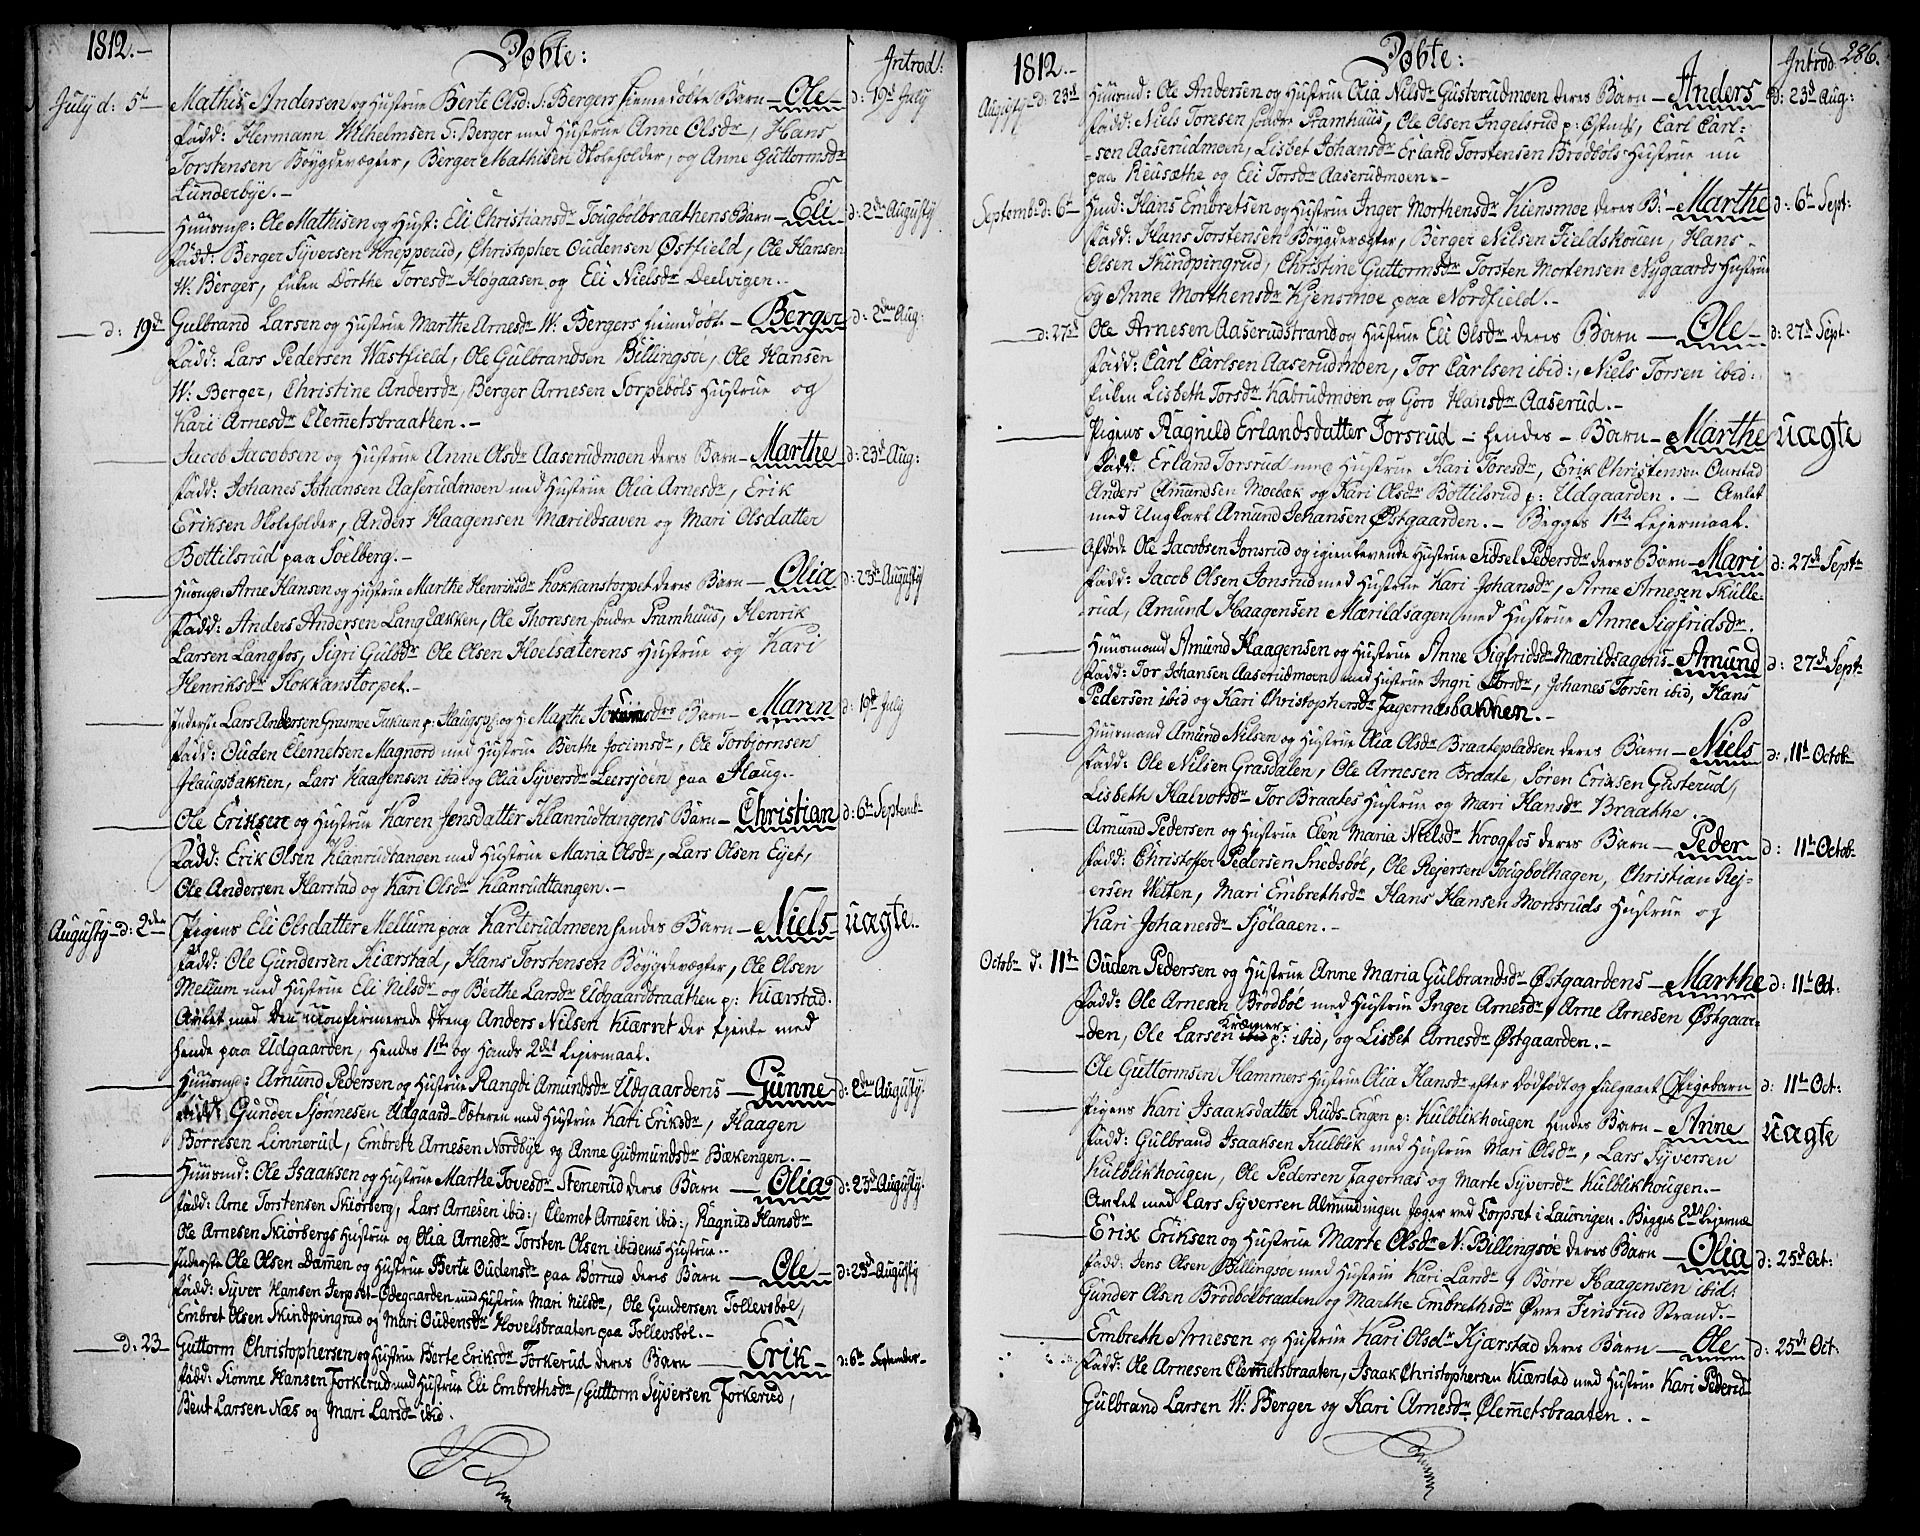 1812.-
Døbte:
Introd:
July d: 5te Mathis Andersen og Hustrue Berte Olsd: S: Bergers hiemedøbte Barn - Ole - d: 19d July
Fadd: Hermann Wilhelmsen S: Berger med Hustrue Anne Olsdr, Hans
Torstensen Bøygdevægter, Berger Mathisen Skoleholder, og Anne Guttormsdr
Lunderbye.-
Huusmd: Ole Mathisen og Hust: Eli Christiansdr Tougbølbraathens Barn - Eli d: 2den Augusty
Fadd: Berger Syversen Knepperud, Christopher Oudensen Østfield, Ole Hansen
W. Berger, Enken Dorthe Toresdr Høgaasen og Eli Nielsdr Deelvigen.-
d: 19de Gulbrand Larsen og Hustrue Marthe Arnesdr W: Bergers hiemedøbt - Berger d: 2den Aug:
Fadd: Lars Pedersen Wastfield, Ole Gulbrandsen Billingsøe, Ole Hansen
W. Berger, Christine Andersdr, Berger Arnesen Torpebøls Hustrue og
Kari Arnesdr Clemetsbraathen.-
Jacob Jacobsen og Hustrue Anne Olsdr Aaserudmoen deres Barn - Marthe d: 23d Aug:
Fadd: Johanes Johansen Aaserudmoen med Hustrue Olia Arnesdr, Erik
Eriksen Skoleholder, Anders Haagensen Mærildsaven og Mari Olsdatter
Bottilsrud paa Soelberg.-
Huusmd: Arne Hansen og Hustrue Marthe Henriksdr Kokkanstorpet deres Barn - Olia d: 23d Augusty
Fadd: Anders Andersen Langebækken, Ole Thoresen søndre Framhuus, Henrik
Larsen Langfos, Sigri Gulsdr Ole Olsen Hoelsæterens Hustrue og Kari
Henriksdr Kokkanstorpet.-
Inderste Lars Andersen Grasmoe p: Haugs og H: Marthe Barn - Maren d: 19d July
Fadd: Ouden Clemetsen Magnord med Hustrue Berthe Jocimsdr, Ole Torbjornsen
Haugsbakken, Lars Haagensen ibid og Olia Syversdr Leersjøen paa Haug.-
Ole Eriksen og Hustrue Karen Jensdatter Klanrudtangens Barn - Christian d: 6te Septemb
Fadd: Erik Olsen Klanrudtangen med Hustrue Maria Olsdr, Lars Olsen Eyet,
Ole Andersen Harstad og Kari Olsdr Klanrudtangen.-
Augusty d: 2den Pigens Eli Olsdatter Mellum paa Karterudmoen hendes Barn - Niels uægte.
Fadd: Ole Gundersen Kiærstad, Hans Torstensen Bøygdevægter, Ole Olsen
Mellum med Hustrue Eli Nilsdr og Berthe Larsdr Udgaardbraathen p: Kiærstad.
Avlet med den uconfirmerede dreng Anders Nilsen Kiærret der tjente med
hende paa Udgaarden, Hendes 1ste og Hands 2det Lejermaal.
Huusmd: Amund Pedersen og Hustrue Rangdi Amundsdr Udgaardens - Gunne d: 2den Augusty
Fadd: Gunder Sjønnesen Udgaard-Sæteren med Hustrue Kari Eriksdr, Haagen
Børresen Linnerud, Embret Arnesen Nordbye og Anne Gudmundsdr Bækengen.-
Huusmd: Ole Isaaksen og Hustrue Marthe Tovesdr Stenerud deres Barn - Olia d: 23d Augusty.
Fadd: Arne Torstensen Skiørberg, Lars Arnesen ibid:, Clemet Arnesen ibid:, Ragnild Hansdr
Ole Arnesen Skiørbergs Hustrue og Olia Arnesdr Torsten Olsen ibidems Hustrue.-
Inderste Ole Olsen Dammen og Hustrue Berte Oudensdr paa Børrud deres Barn - Ole - d: 23d Augusty
Fadd: Syver Hansen Jerpset-Ødegaarden med Hustrue Mari Nilsdr, Ole Gundersen Tollevsbøl,
Embret Olsen Skindpingrud og Mari Oudensdr Hovelsbraaten paa Tollevsbøl.-
d: 23 Guttorm Christophersen og Hustrue Berte Eriksdr Forkerud deres Barn - Erik d: 6te September
Fadd: Sionne Hansen Forkerud med Hustrue Eli Embrethsdr, Guttorm Syversen Forkerud,
Bent Larsen Næs og Mari Larsdr ibid.
1812.-
Døbte:
Introd: 286.
Augusty d: 23d Huusmd: Ole Andersen og Hustrue Olia Nilsdr Gusterudmoen deres Barn - Anders d: 23d Aug:
Fadd: Niels Toresen søndre Framhuus, Ole Olsen Ingelsrud p: Østmd, Carl Carl-
sen Aaserudmoen, Lisbet Johansdr Erland Torstensen Brødbøls Hustrue nu
paa Reusæthe og Eli Torsdr Aaserudmoen.-
Septemb: d: 6te Husmd: Hans Embretsen og Hustrue Inger Morthensdr Kiensmoe deres B: - Marthe d: 6te Sept:
Fadd: Hans Torstensen Bøygdevægter, Berger Nilsen Fieldskouen, Hans
Olsen Skindpingrud, Christine Guttormsdr Torsten Mortensen Nygaards Hustrue
og Anne Morthensdr Kjensmoe paa Nordfield.-
d: 27d Ole Arnesen Aaserudstrand og Hustrue Eli Olsdr deres Barn - Ole d: 27d Sept.
Fadd: Carl Carlsen Aaserudmoen, Tor Carlsen ibid:, Niels Torsen ibid:
Enken Lisbeth Torsdr Kabrudmoen og Goro Hansdr Aaserud.-
Pigens Ragnild Erlandsdatter Torsrud - hendes - Barn - Marthe uægte
Fadd: Erland Torsrud med Hustrue Kari Toresdr, Erik Christensen Ourstad
Anders Amundsen Moebæk og Kari Olsdr Bottilsrud p: Udgaarden.- Avlet
med Ungkarl Amund Johansen Østgaarden.- Begges 1ste Lejermaal.
Afdøde Ole Jacobsen Jonsrud og igienlevende Hustrue Sidsel Pedersdr deres Barn - Mari d: 27d Sept
Fadd: Jacob Olsen Jonsrud med Hustrue Kari Johansdr, Arne Arnesen Skulle-
rud, Amund Haagensen Mærildsagen med Hustrue Anne Sigfridsdr.
Huusmand Amund Haagensen og Hustrue Anne Sigfridsdr Mærildsagens - Amund d: 27d Sept
Fadd: Tor Johansen Aaserudmoen med Hustrue Ingri Torsdr, Johanes Torsen ibid, Hans
Pedersen ibid og Kari Christophersdr Fagernæsbakken.-
Huusmand Amund Nilsen og Hustrue Olia Olsdr Braatepladsen deres Barn - Niels d: 11te Octob
Fadd: Ole Nilsen Grasdalen, Ole Arnesen Braate, Søren Eriksen Gusterud,
Lisbeth Halvorsdr Tor Braates Hustrue og Mari Hansdr Braathe.
Amund Pedersen og Hustrue Elen Maria Nielsdr Krogfos deres Barn - Peder d: 11te Octob
Fadd: Christoffer Pedersen Snedsbøl, Ole Rejersen Tougbølhagen, Christian Rej-
ersen Velten, Mari Embrethsdr Hans Hansen Monsruds Hustrue og
Kari Johanesdr Sjølaaen.-
Octobr d. 11te Ouden Pedersen og Hustrue Anne Maria Gulbrandsdr Østgaardens - Marthe d: 11te Oct:
Fadd: Ole Arnesen Brødbøl med Hustrue Inger Arnesdr, Arne Arnesen Østgaar-
den, Ole Larsen Kræmer p: ibid, og Lisbet Arnesdr Østgaarden.-
Ole Guttormsen Hammers Hustrue Olia Hansdr efter dødfødt og fulgaaet Pigebarn d: 11te Oct:
Pigens Kari Isaaksdatter Ruds-Engen p: Kulblikhougen hendes Barn - Anne uægte
Fadd: Gulbrand Isaaksen Kulblik med Hustrue Mari Olsdr, Lars Syversen
Kulblikhougen, Ole Pedersen Fagernæs og Marte Syversdr Kulblikhougen.-
Avlet med Lars Syversen Almindingen Jæger ved Corpset i Laurvigen. Begges 2det Lejerm
Erik Eriksen og Hustrue Marte Olsdr N. Billingsøe deres Barn - Olia d: 25d Oct:
Fadd: Jens Olsen Billingsøe med Hustrue Kari Børre Haagensen ibid:
Gunder Olsen Brødbølbraaten og Marthe Embrethsdr Øvre Finsrud Strand.-
Embreth Arnesen og Hustrue Kari Olsdr Kjærstad deres Barn - Ole d: 25d Oct.
Fadd: Ole Arnesen Clemetsbraaten, Isaak Christophersen Kiærstad med Hustrue Kari Pedersd
Gulbrand Larsen W: Berger og Kari Arnesdr Clemetsbraaten.-